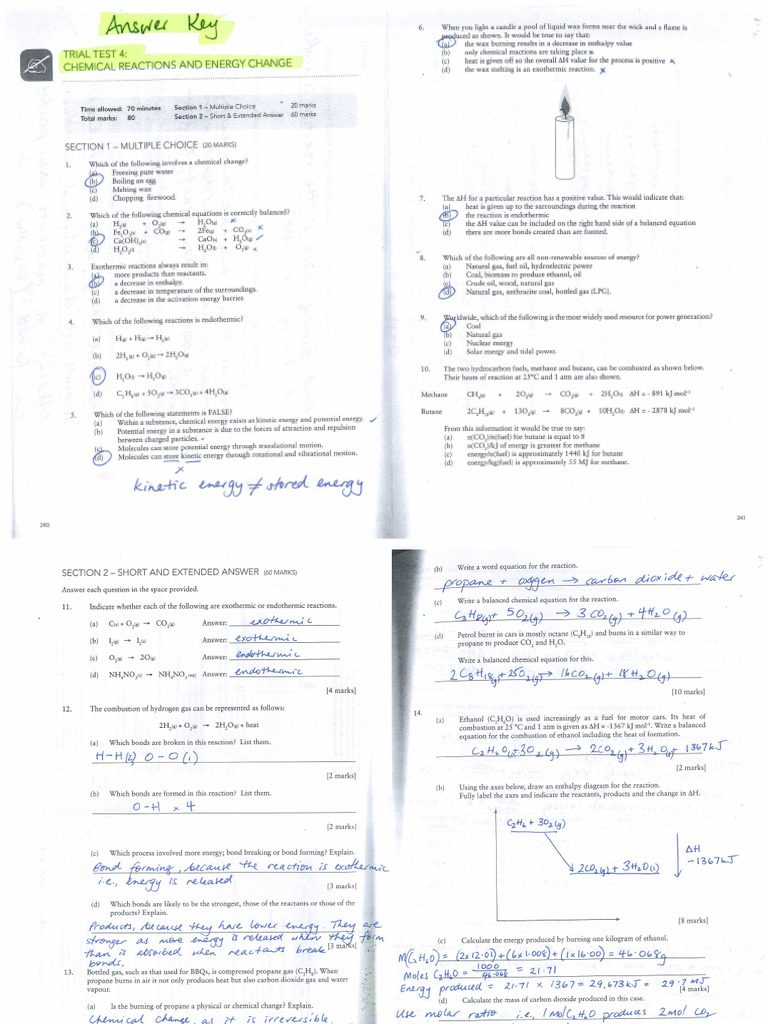 Answer Key
TRIAL TEST 4:
CHEMICAL REACTIONS AND ENERGY CHANGE
Time allowed: 70 minutes Section 1 – Multiple Choice 20 marks
Total marks: 80 Section 2 – Short & Extended Answer 60 marks
SECTION 1 – MULTIPLE CHOICE (20 MARKS)
1. Which of the following involves a chemical change?
(a) Freezing pure water
(b) Boiling an egg
(c) Melting wax
(d) Chopping firewood.
2. Which of the following chemical equations is correctly balanced?
(a) H₂(g) + O₂(g) → H₂O(g) ×
(b) Fe₂O₃(s) + CO(g) → 2Fe(s) + CO₂(g) ×
(c) Ca(OH)₂(s) → CaO(s) + H₂O(g) ✓
(d) H₂O₂(l) → H₂O(l) + O₂(g) ×
3. Exothermic reactions always result in:
(a) more products than reactants.
(b) a decrease in enthalpy.
(c) a decrease in temperature of the surroundings.
(d) a decrease in the activation energy barrier.
4. Which of the following reactions is endothermic?
(a) H(g) + H(g) → H₂(g)
(b) 2H₂(g) + O₂(g) → 2H₂O(g)
(c) H₂O(l) → H₂O(g)
(d) C₃H₈(g) + 5O₂(g) → 3CO₂(g) + 4H₂O(g)
5. Which of the following statements is FALSE?
(a) Within a substance, chemical energy exists as kinetic energy and potential energy. ✓
(b) Potential energy in a substance is due to the forces of attraction and repulsion
between charged particles.
(c) Molecules can store potential energy through translational motion.
(d) Molecules can store kinetic energy through rotational and vibrational motion.
×
kinetic energy ≠ stored energy
240
6. When you light a candle a pool of liquid wax forms near the wick and a flame is
produced as shown. It would be true to say that:
(a) the wax burning results in a decrease in enthalpy value
(b) only chemical reactions are taking place ×
(c) heat is given off so the overall ΔH value for the process is positive ×
(d) the wax melting is an exothermic reaction. ×
7. The ΔH for a particular reaction has a positive value. This would indicate that:
(a) heat is given up to the surroundings during the reaction
(b) the reaction is endothermic
(c) the ΔH value can be included on the right hand side of a balanced equation
(d) there are more bonds created than are formed.
8. Which of the following are all non-renewable sources of energy?
(a) Natural gas, fuel oil, hydroelectric power
(b) Coal, biomass to produce ethanol, oil
(c) Crude oil, wood, natural gas
(d) Natural gas, anthracite coal, bottled gas (LPG).
9. Worldwide, which of the following is the most widely used resource for power generation?
(a) Coal
(b) Natural gas
(c) Nuclear energy
(d) Solar energy and tidal power.
10. The two hydrocarbon fuels, methane and butane, can be combusted as shown below.
Their heats of reaction at 25°C and 1 atm are also shown.
Methane CH₄(g) + 2O₂(g) → CO₂(g) + 2H₂O(l) ΔH = - 891 kJ mol⁻¹
Butane 2C₄H₁₀(g) + 13O₂(g) → 8CO₂(g) + 10H₂O(l) ΔH = - 2878 kJ mol⁻¹
From this information it would be true to say:
(a) n(CO₂)/n(fuel) for butane is equal to 8
(b) n(CO₂)/kJ of energy is greatest for methane
(c) energy/n(fuel) is approximately 1440 kJ for butane
(d) energy/kg(fuel) is approximately 55 MJ for methane.
241
SECTION 2 – SHORT AND EXTENDED ANSWER (60 MARKS)
Answer each question in the space provided.
11. Indicate whether each of the following are exothermic or endothermic reactions.
(a) C(s) + O₂(g) → CO₂(g) Answer: exothermic
(b) I₂(g) → I₂(s) Answer: exothermic
(c) O₂(g) → 2O(g) Answer: endothermic
(d) NH₄NO₃(s) → NH₄NO₃(aq) Answer: endothermic
[4 marks]
12. The combustion of hydrogen gas can be represented as follows:
2H₂(g) + O₂(g) → 2H₂O(g) + heat
(a) Which bonds are broken in this reaction? List them.
H–H(2) O–O(1)
[2 marks]
(b) Which bonds are formed in this reaction? List them.
O–H × 4
[2 marks]
(c) Which process involved more energy; bond breaking or bond forming? Explain.
Bond forming, because the reaction is exothermic
i.e., energy is released
[3 marks]
(d) Which bonds are likely to be the strongest, those of the reactants or those of the
products? Explain.
Products, because they have lower energy. They are
stronger as more energy is released when they form
than is absorbed when reactants break [3 marks]
bonds.
13. Bottled gas, such as that used for BBQs, is compressed propane gas (C₃H₈). When
propane burns in air it not only produces heat but also carbon dioxide gas and water
vapour.
(a) Is the burning of propane a physical or chemical change? Explain.
Chemical change, as it is irreversible.
(b) Write a word equation for the reaction.
propane + oxygen → carbon dioxide + water
(c) Write a balanced chemical equation for the reaction.
C₃H₈(g) + 5O₂(g) → 3CO₂(g) + 4H₂O(g)
(d) Petrol burnt in cars is mostly octane (C₈H₁₈) and burns in a similar way to
propane to produce CO₂ and H₂O.
Write a balanced chemical equation for this.
2C₈H₁₈(g) + 25O₂(g) → 16CO₂(g) + 18H₂O(g)
[10 marks]
14.
(a) Ethanol (C₂H₆O) is used increasingly as a fuel for motor cars. Its heat of
combustion at 25 °C and 1 atm is given as ΔH = -1367 kJ mol⁻¹. Write a balanced
equation for the combustion of ethanol including the heat of formation.
C₂H₆O(l) + 3O₂(g) → 2CO₂(g) + 3H₂O(l) + 1367kJ
[2 marks]
(b) Using the axes below, draw an enthalpy diagram for the reaction.
Fully label the axes and indicate the reactants, products and the change in ΔH.
C₂H₆ + 3O₂(g)
ΔH
-1367kJ
2CO₂(g) + 3H₂O(l)
[8 marks]
(c) Calculate the energy produced by burning one kilogram of ethanol.
M(C₂H₆O) = (2×12.01)+(6×1.008)+(1×16.00) = 46.068g
Moles C₂H₆O = 1000/46.068 = 21.71
Energy produced = 21.71 × 1367 = 29,673kJ = 29.7 MJ
[4 marks]
(d) Calculate the mass of carbon dioxide produced in this case.
Use molar ratio i.e., 1 mol C₂H₆O produces 2mol CO₂